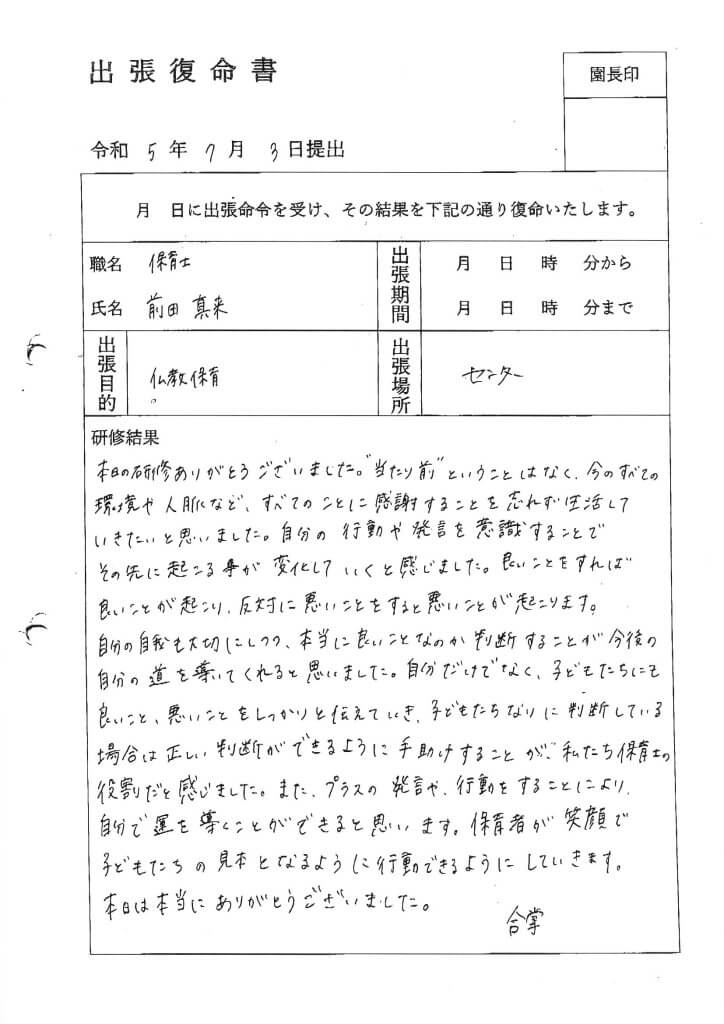 出張復命書
園長印
令和 5 年 7 月 3 日提出
月 日に出張命令を受け、その結果を下記の通り復命いたします。
職名 保育士
氏名 前田 真来
出張期間
月 日 時 分から
月 日 時 分まで
出張目的
仏教保育
出張場所
センター
研修結果
本日の研修ありがとうございました。"当たり前"ということはなく、今のすべての
環境や人脈など、すべてのことに感謝することを忘れず生活して
いきたいと思いました。自分の行動や発言を意識することで
その先に起こる事が変化していくと感じました。良いことをすれば
良いことが起こり、反対に悪いことをすると悪いことが起こります。
自分の自我も大切にしつつ、本当に良いことなのか判断することが今後の
自分の道を導いてくれると思いました。自分だけでなく、子どもたちにも
良いこと、悪いことをしっかりと伝えていき、子どもたちなりに判断している
場合は正しい判断ができるように手助けすることが、私たち保育士の
役割だと感じました。また、プラスの発言や、行動をすることにより、
自分で運を導くことができると思います。保育者が笑顔で
子どもたちの見本となるように行動できるようにしていきます。
本日は本当にありがとうございました。
合掌